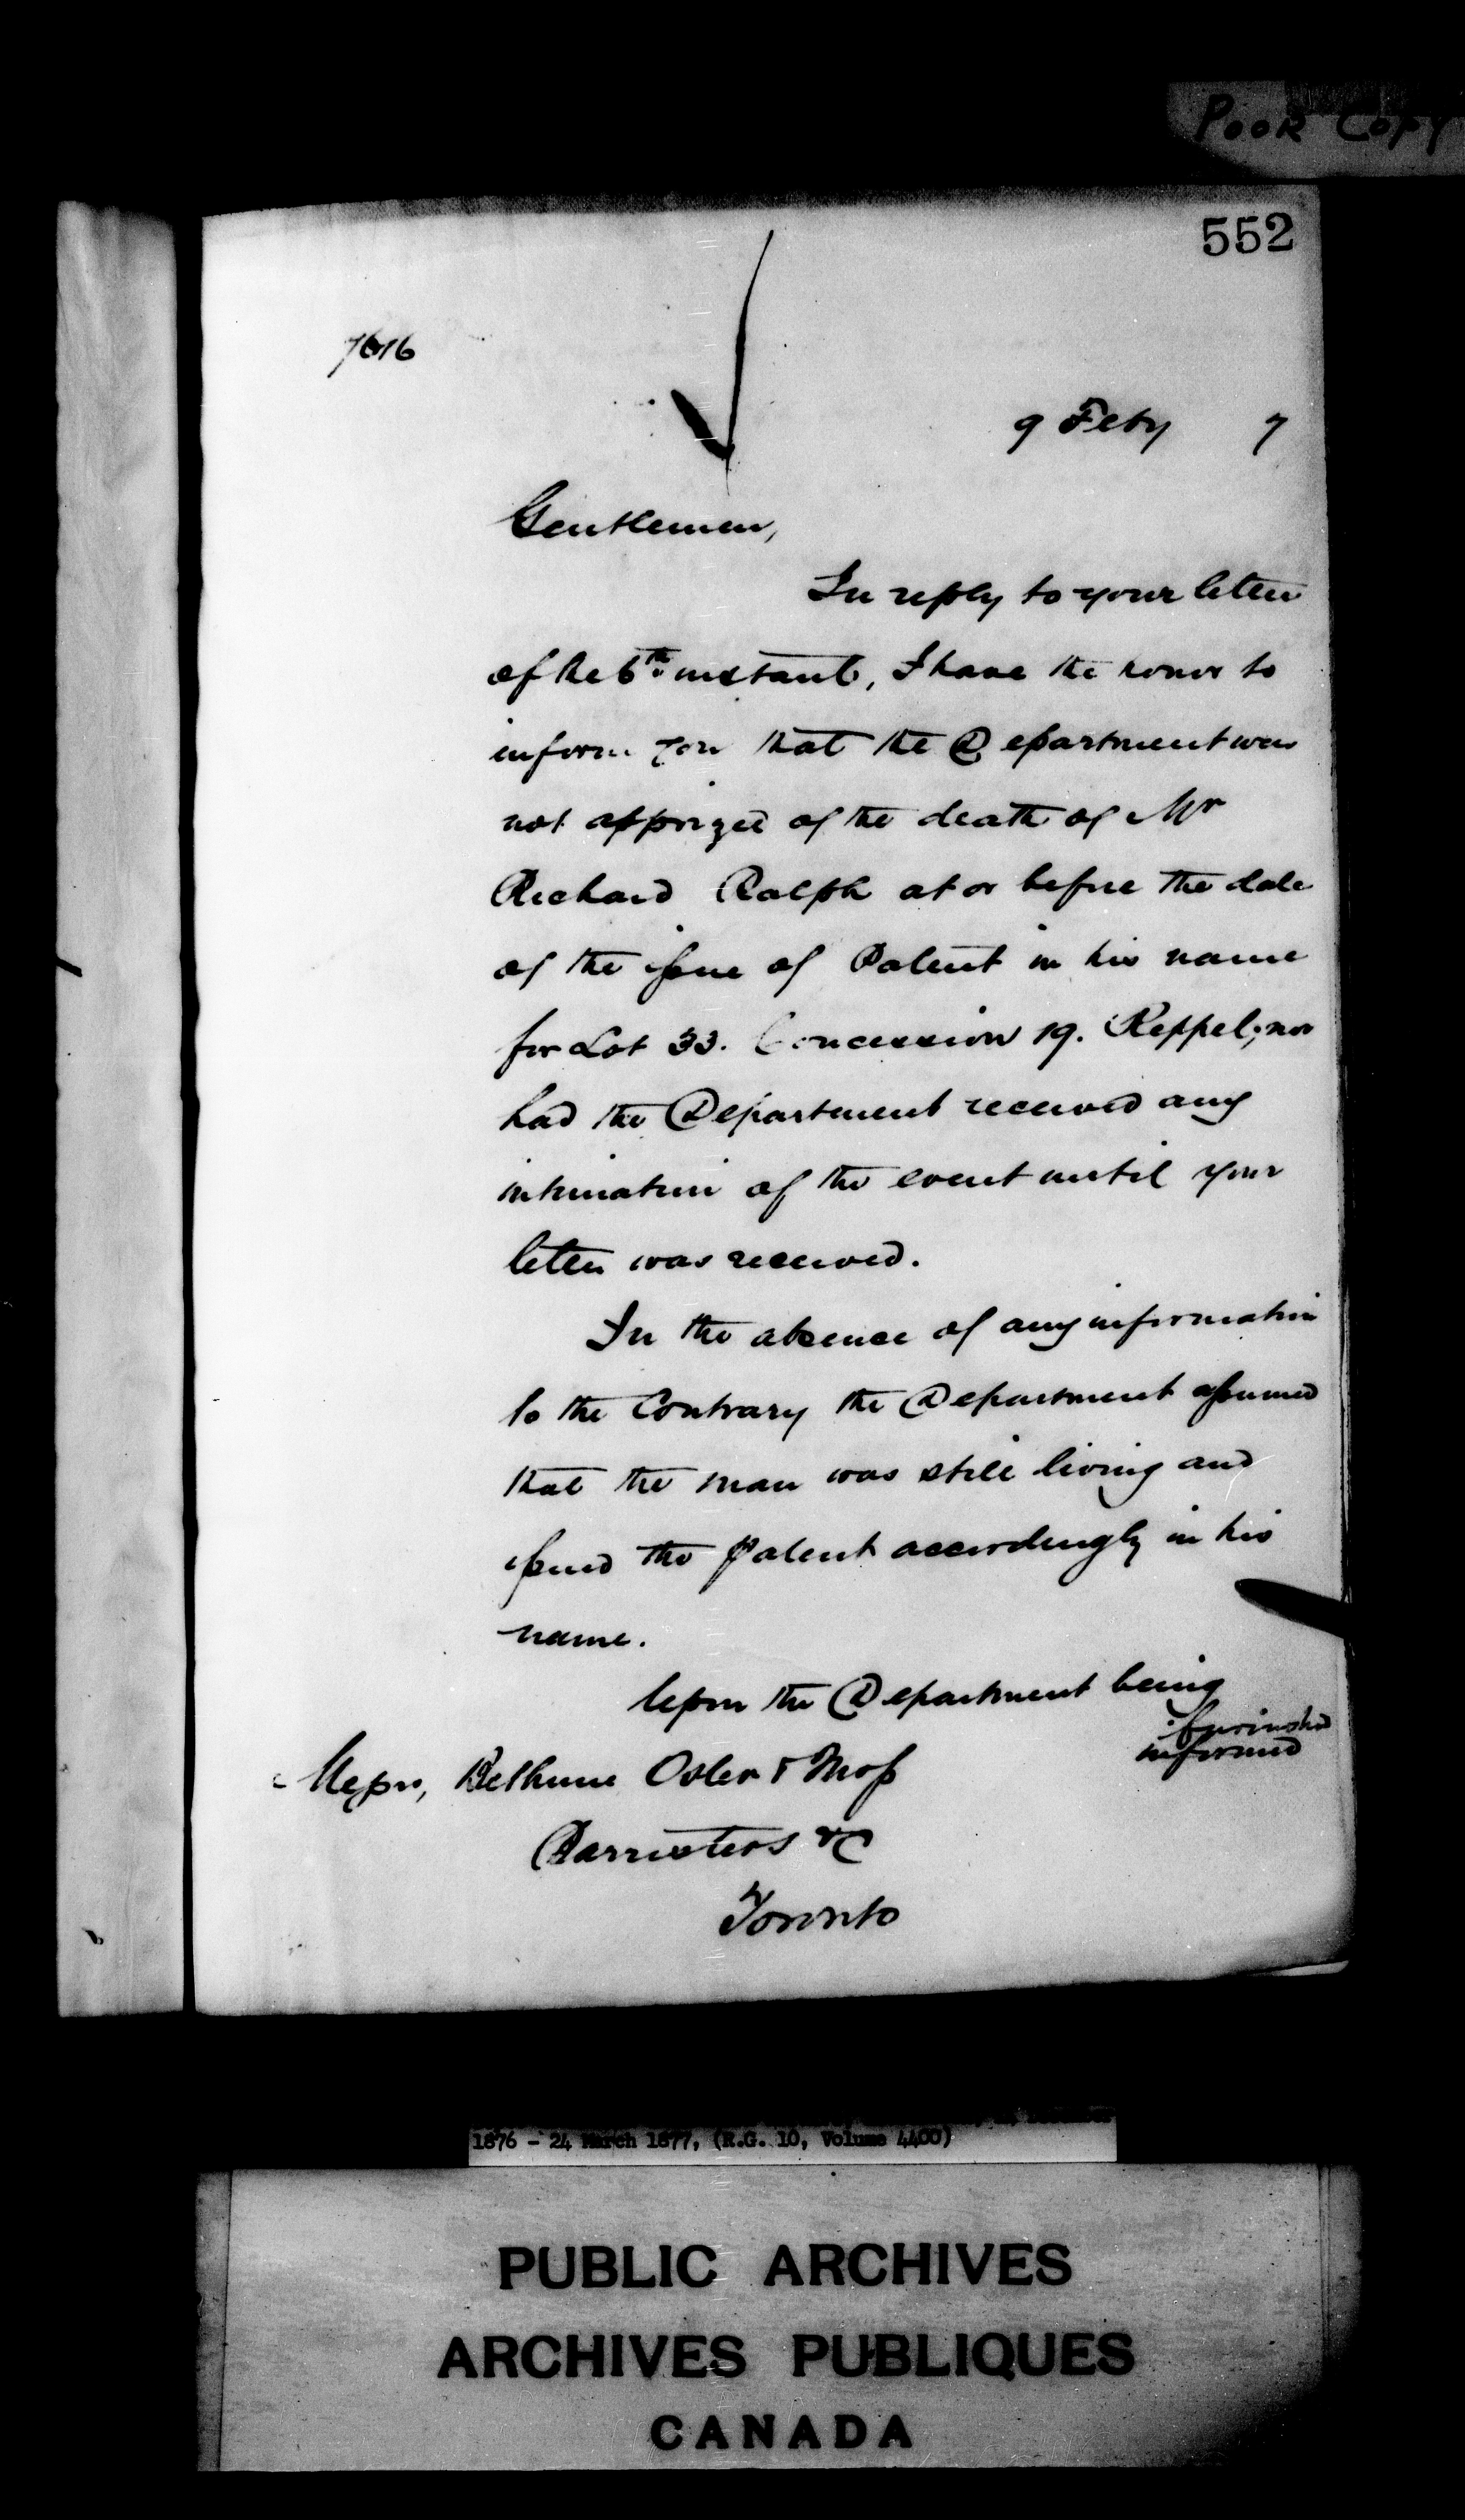 Poor Copy
552
7616
9 Feby 7
Gentlemen,
In reply to your letter
of the 6th instant, I have the honor to
inform you that the Department was
not apprized of the death of Mr
Richard Ralph at or before the date
of the issue of Patent in his name
for Lot 33. Concession 19. Keppel; nor
had the Department received any
intimation of the event until your
letter was received.
In the absence of any information
to the Contrary the Department assumed
that the man was still living and
issued the patent accordingly in his
name.
Upon the Department being
furnished
informed
Messrs, Bethune Osler & Moss
Barristers &c
Toronto
1876 - 24 March 1877, (R.G. 10, Volume 4400)
PUBLIC ARCHIVES
ARCHIVES PUBLIQUES
CANADA